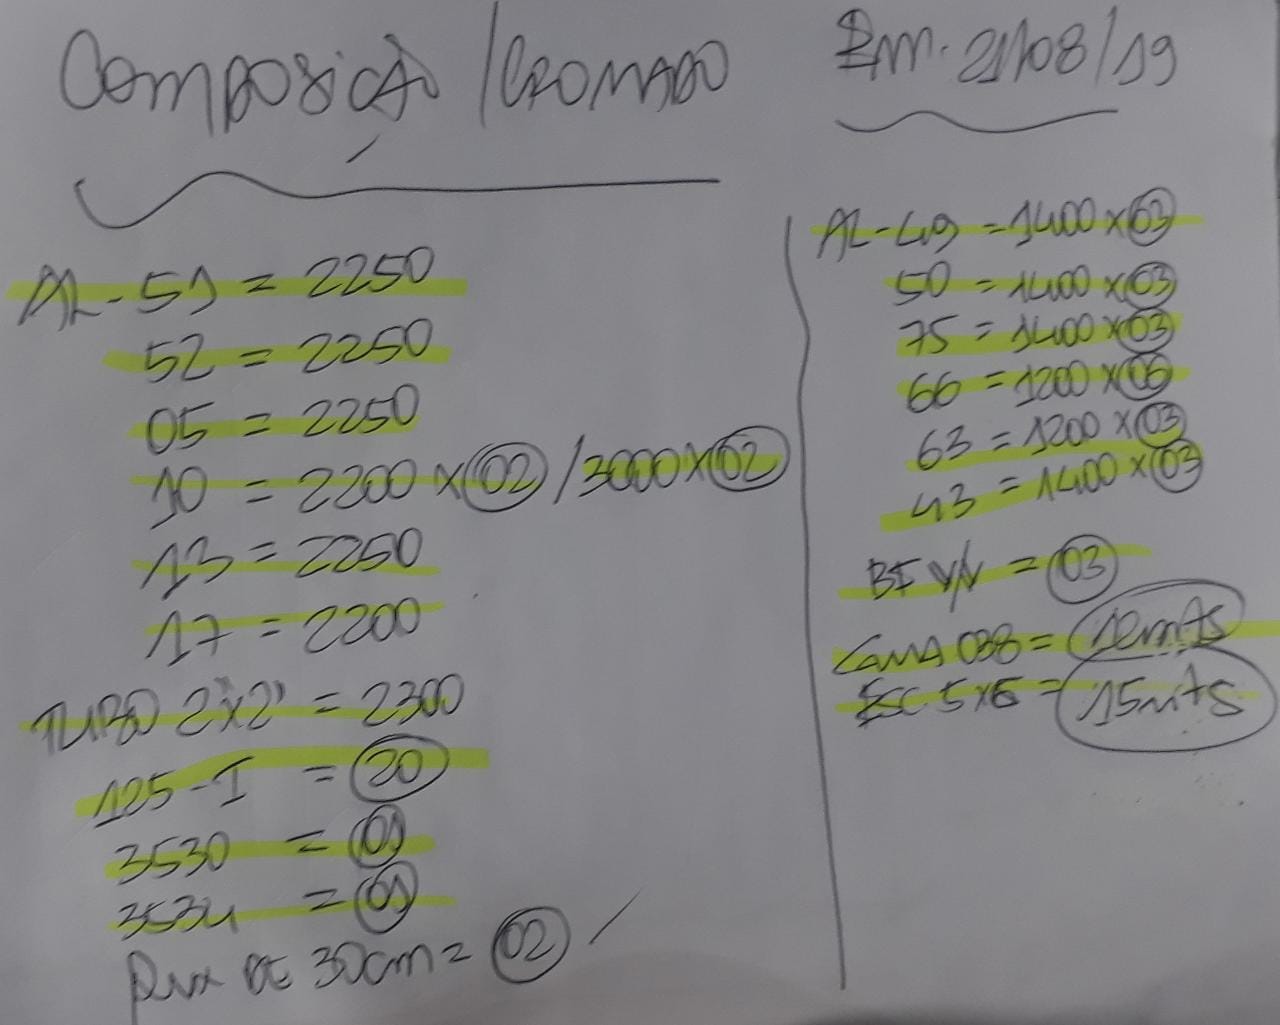 Composição / Cromado
Em. 21/08/19
AL-51 = 2250
52 = 2250
05 = 2250
10 = 2200 x 02 / 3000 x 02
13 = 2250
17 = 2200
TUBO 2"x2" = 2300
125-I = 20
3530 = 01
3534 = 01
Pux de 30cm = 02
AL-49 = 1400 x 03
50 = 1400 x 03
75 = 1400 x 03
66 = 1200 x 06
63 = 1200 x 03
43 = 1400 x 03
BF V/V = 03
038 = 12mts
ESC 5x6 = 15mts